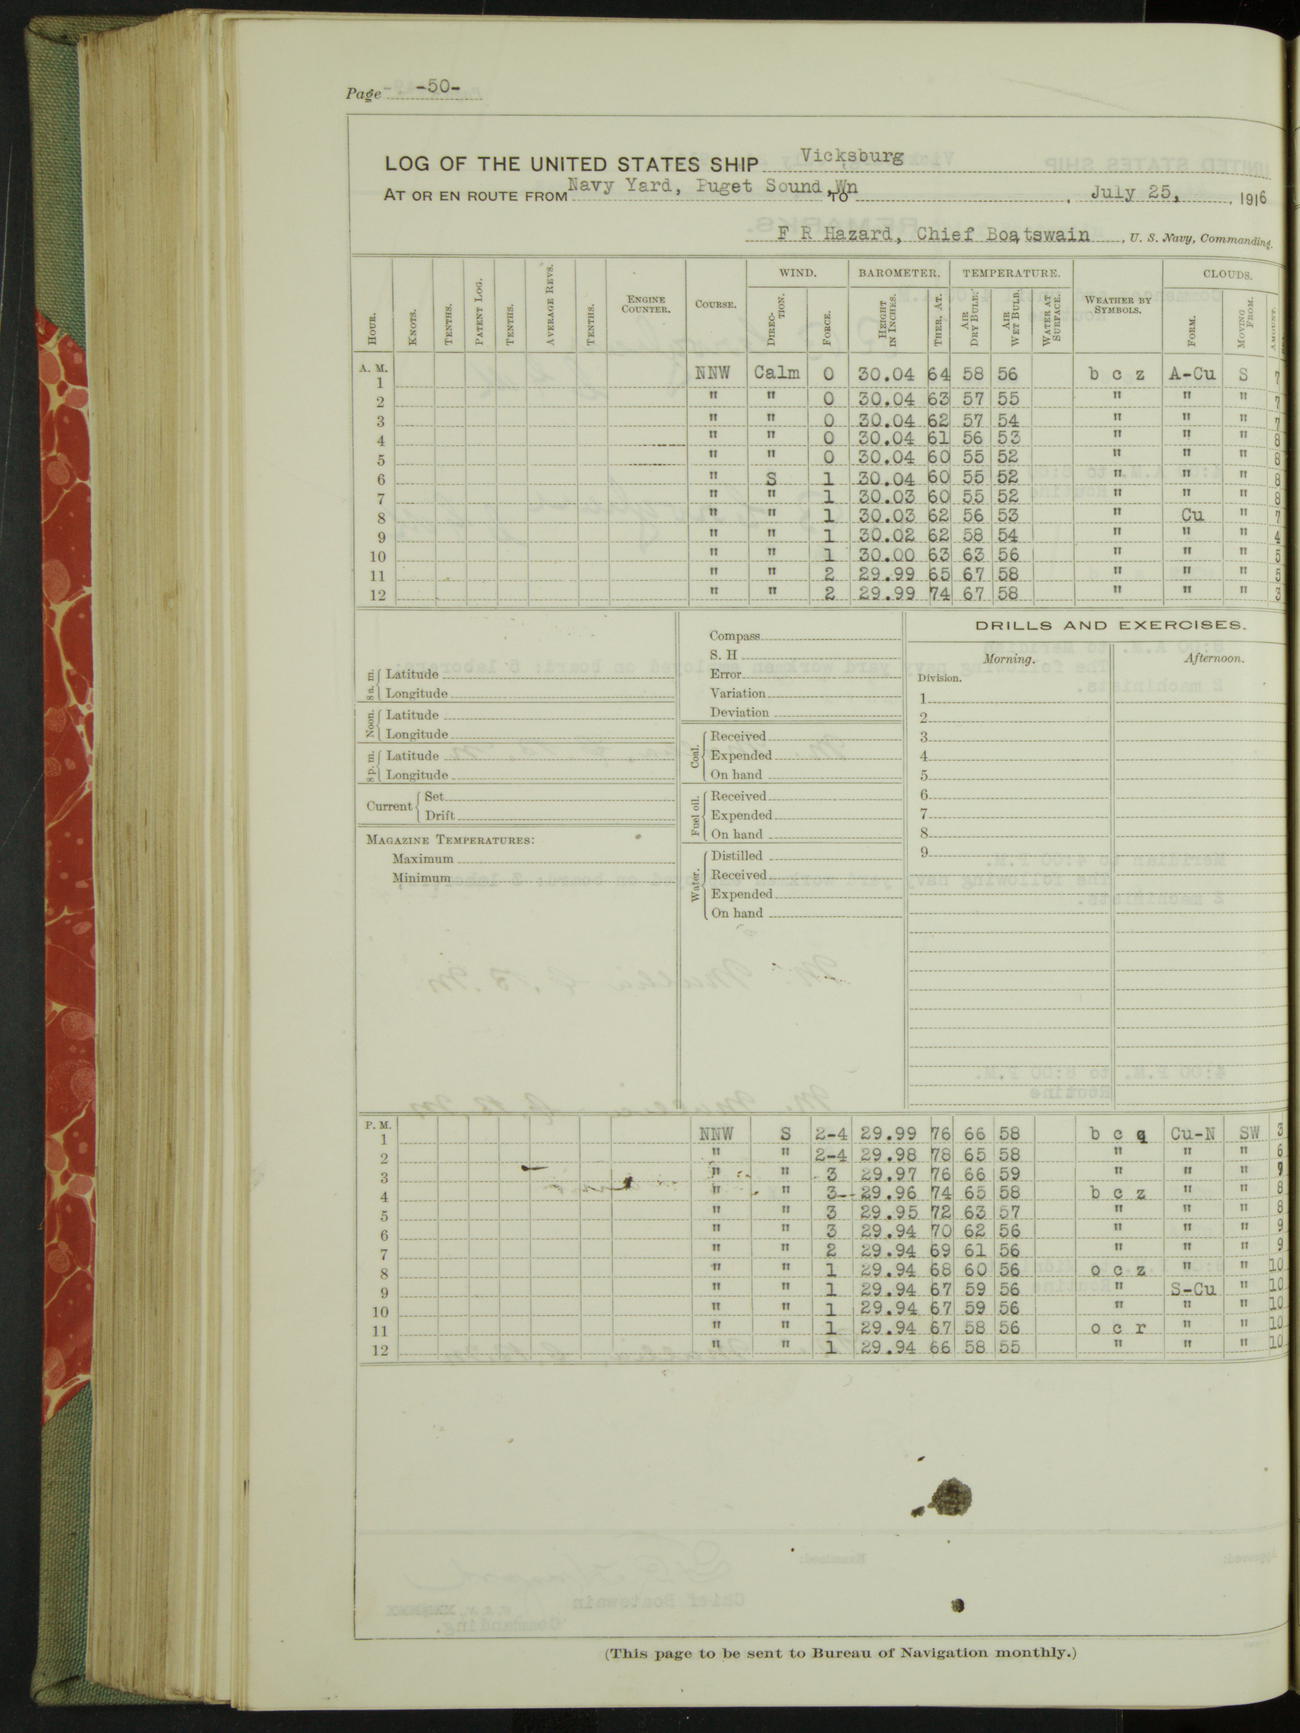 Page -50-
LOG OF THE UNITED STATES SHIP Vicksburg
AT OR EN ROUTE FROM Navy Yard, Puget Sound, Wn TO , July 25, , 1916
F R Hazard, Chief Boatswain , U. S. Navy, Commanding.
HOUR. KNOTS. TENTHS. PATENT LOG. TENTHS. AVERAGE REVS. TENTHS. ENGINE COUNTER. COURSE. WIND. DIRECTION. FORCE. BAROMETER. HEIGHT IN INCHES. THER. AT. TEMPERATURE. AIR DRY BULB. AIR WET BULB. WATER AT SURFACE. WEATHER BY SYMBOLS. CLOUDS. FORM. MOVING FROM. AMOUNT.
A. M.
1 NNW Calm 0 30.04 64 58 56 b c z A-Cu S 7
2 " " 0 30.04 63 57 55 " " " 7
3 " " 0 30.04 62 57 54 " " " 7
4 " " 0 30.04 61 56 53 " " " 8
5 " " 0 30.04 60 55 52 " " " 8
6 " S 1 30.04 60 55 52 " " " 8
7 " " 1 30.03 60 55 52 " " " 8
8 " " 1 30.03 62 56 53 " Cu " 7
9 " " 1 30.02 62 58 54 " " " 4
10 " " 1 30.00 63 63 56 " " " 5
11 " " 2 29.99 65 67 58 " " " 5
12 " " 2 29.99 74 67 58 " " " 3
8 a. m. Latitude
Longitude
Noon. Latitude
Longitude
8 p. m. Latitude
Longitude
Current Set
Drift
MAGAZINE TEMPERATURES:
Maximum
Minimum
Compass
S. H
Error
Variation
Deviation
Coal. Received
Expended
On hand
Fuel oil. Received
Expended
On hand
Water. Distilled
Received
Expended
On hand
DRILLS AND EXERCISES.
Morning. Afternoon.
Division.
1
2
3
4
5
6
7
8
9
P. M.
1 NNW S 2-4 29.99 76 66 58 b c q Cu-N SW 3
2 " " 2-4 29.98 78 65 58 " " " 6
3 " " 3 29.97 76 66 59 " " "
4 " " 3 29.96 74 65 58 b c z " " 8
5 " " 3 29.95 72 63 57 " " " 8
6 " " 3 29.94 70 62 56 " " " 9
7 " " 2 29.94 69 61 56 " " " 9
8 " " 1 29.94 68 60 56 o c z " " 10
9 " " 1 29.94 67 59 56 " S-Cu " 10
10 " " 1 29.94 67 59 56 " " " 10
11 " " 1 29.94 67 58 56 o c r " " 10
12 " " 1 29.94 66 58 55 " " " 10
(This page to be sent to Bureau of Navigation monthly.)